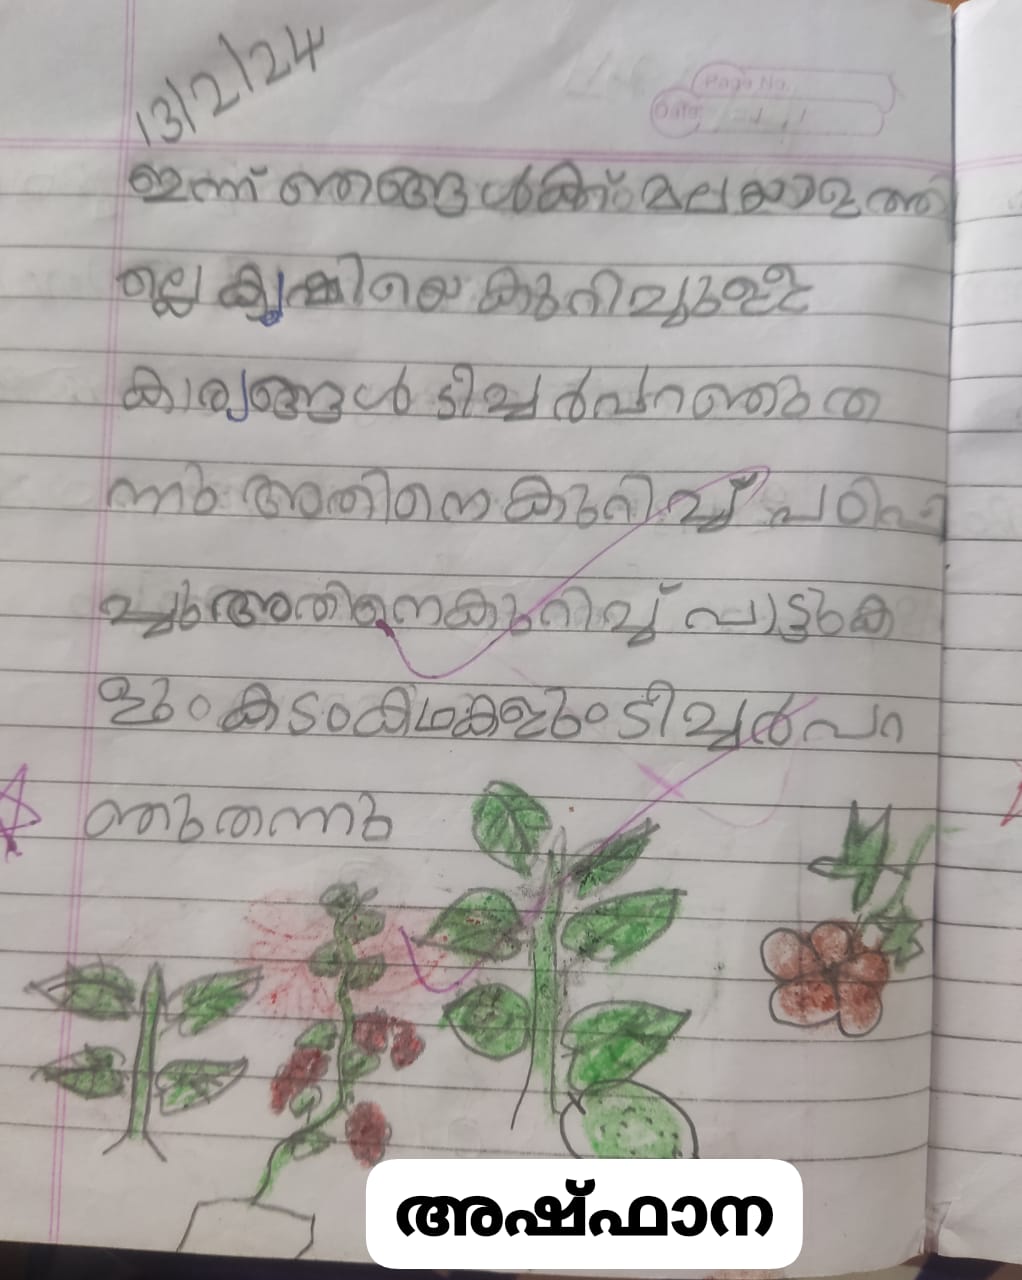 13/2/24
Page No.
Date:
ഇന്ന് ഞങ്ങൾക്ക് മലയാളത്തി
ല്ലെ കൃഷിയെ കുറിച്ചുള്ള
കാര്യങ്ങൾ ടീച്ചർ പറഞ്ഞുത
ന്നു അതിനെകുറിച്ച് പഠിപ്പി
ച്ചു അതിനെകുറിച്ച് പാട്ടുക
ളും കടംകഥകളും ടീച്ചർ പറ
ഞ്ഞുതന്നു
അഷ്ഫാന